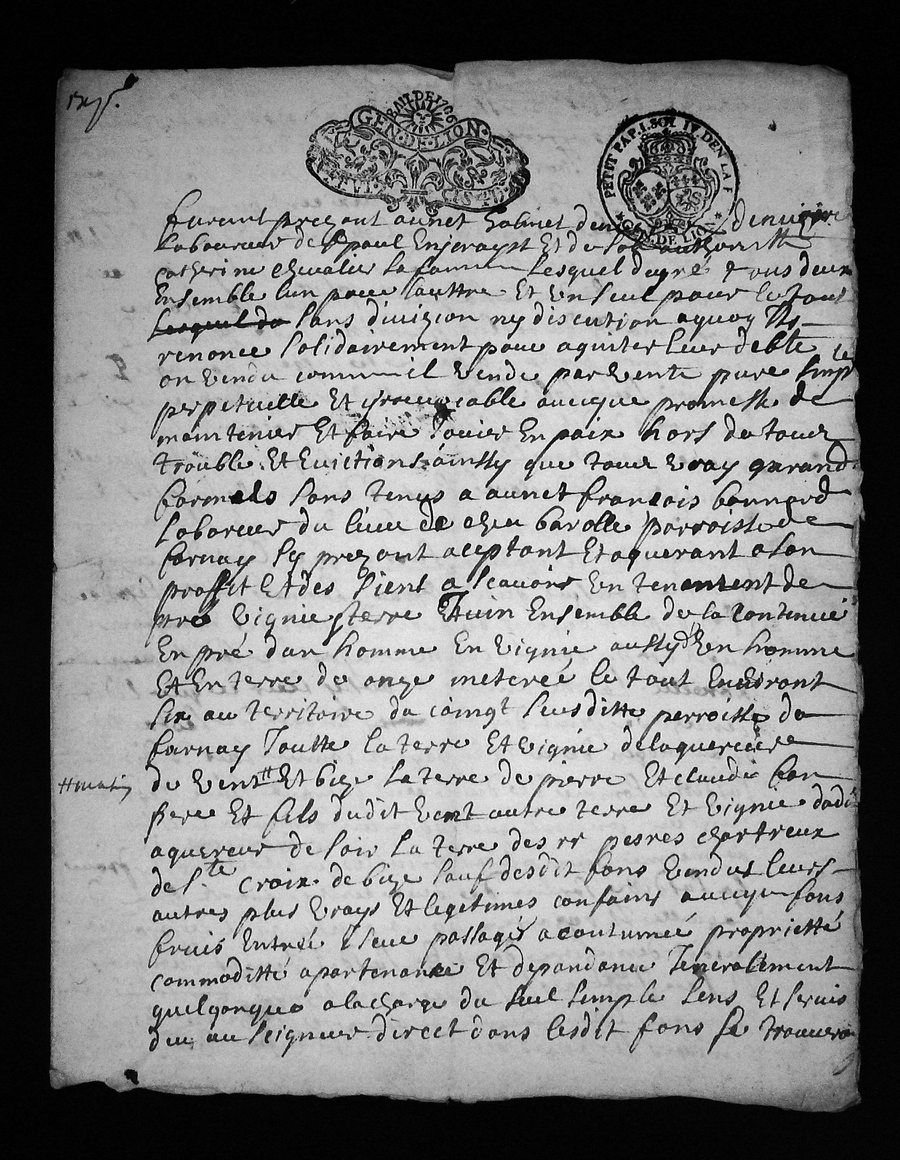 BAIL DE 1706
GEN · DE · LION
PETIT PAP. 1. SOL IV. DEN. LA F
GEN. DE LION
furent prezent
Laboureur de St paul Enjarayst Et de Son authoritte
catherine chevalier sa famme Lesquel de gré & tous deux
Ensemble lun pour lauttre Et un seul pour le tout
Lesquel de Sans divizion ny discution a quoy Ils
renonce Solidairement pour aquiter leur debte
on vendu comme il vende par vente pure simple
perpetuelle Et irevocable avecque promesse de
maintenir Et faire Jouier En paix hors de tout
trouble Et Evictions ainssy que tout vray garand
formels Sont tenus a aunet francois bonnard
Laboreur du lieu de chez barolle parroisse de
farnay Jcy prezent aceptant Et aquerant a son
proffit Et des Siens a Scavoir Un tenement de
pré vignie & terre Ensemble de la contenue
En pré dun homme En Vignie aussy d'un homme
Et En terre de onze meterée le tout Environt
Six au territoire du coingt Susditte perroisse de
farnay Joutte la terre Et vignie de laquereur
de Vent Et bize la terre de pierre Et claude
pere Et fils dudit Vent autre terre Et Vignie dudit
aquereur de Soir La terre des rr peres chartreux
de Ste croix de bize Sauf desdit fons Vendus leurs
autres plus vrays Et legitimes confains avecque fons
fruis Entrée issue passages acoutumée proprietté
commoditté apartenance Et depandance Jeneralement
quelconque a la charge du Seul Simple Sens Et Servis
deu au Seigneur direct dont lesdit fons Se trouveron